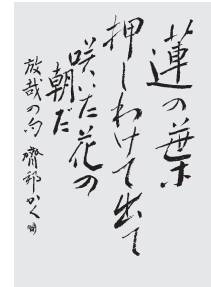 蓮の葉
押しわけて出て
咲いた花の
朝だ
放哉の句 齊邦かく